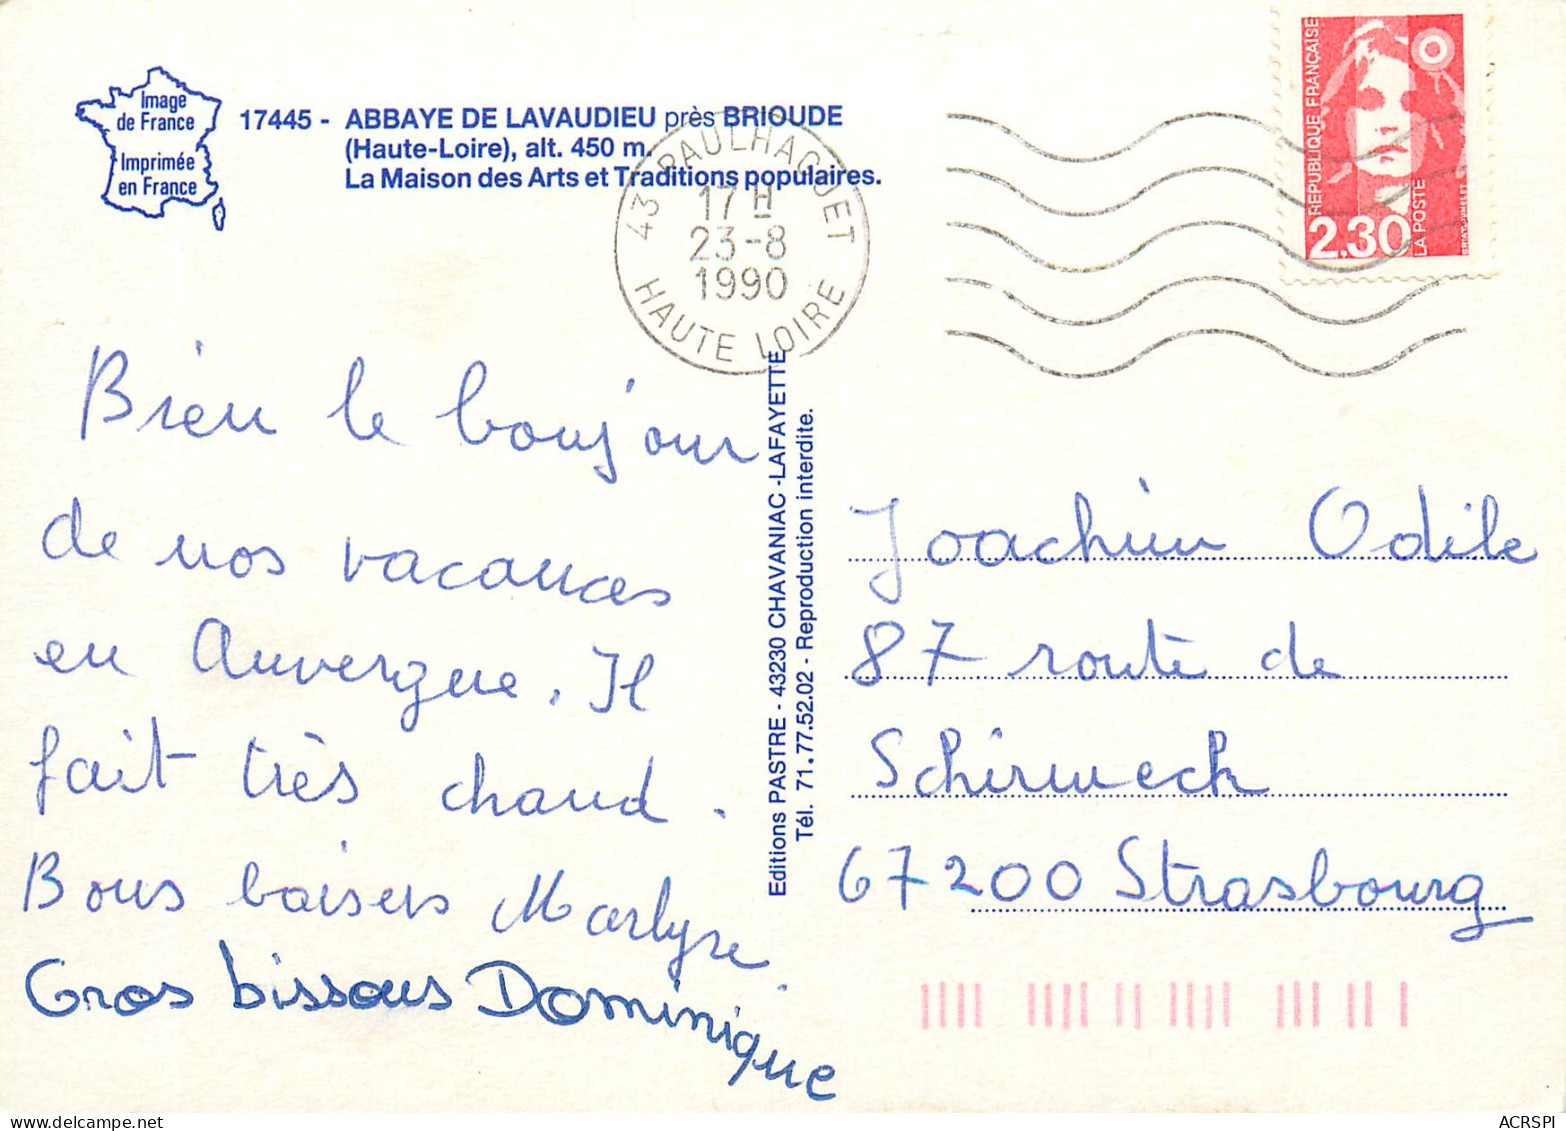 Image
de France
Imprimée
en France
17445 - ABBAYE DE LAVAUDIEU près BRIOUDE
(Haute-Loire), alt. 450 m.
La Maison des Arts et Traditions populaires.
43 PAULHAGUET
17 H
23-8
1990
HAUTE LOIRE
REPUBLIQUE FRANÇAISE
2,30
LA POSTE
Bien le bonjour
de nos vacances
en Auvergne. Il
fait très chaud.
Bons baisers Marlyse
Gros bissous Dominique
Editions PASTRE - 43230 CHAVANIAC-LAFAYETTE
Tél. 71.77.52.02 - Reproduction interdite.
Joachim Odile
87 route de
Schirmeck
67200 Strasbourg
ACRSPI